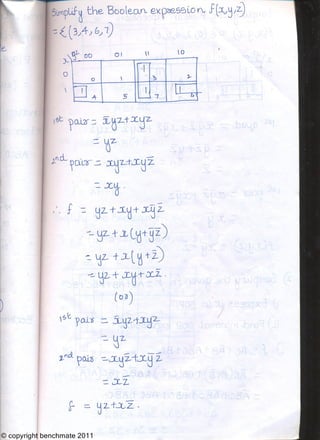 Simplify the Boolean expression f(x,y,z)
= Σ(3,4,6,7)
x yz 00 01 11 10
0 0 1 1 3 2
1 1 4 5 1 7 1 6
1st pair = x̄yz+xyz
= yz
2nd pair = xyz+xyz̄
= xy.
∴ f = yz+xy+xȳz̄
= yz+x(y+ȳz̄)
= yz+x(y+z̄)
= yz+xy+xz̄.
(or)
1st pair = x̄yz+xyz
= yz
2nd pair = xyz̄+xȳz̄
= xz̄
f = yz+xz̄.
© copyright benchmate 2011